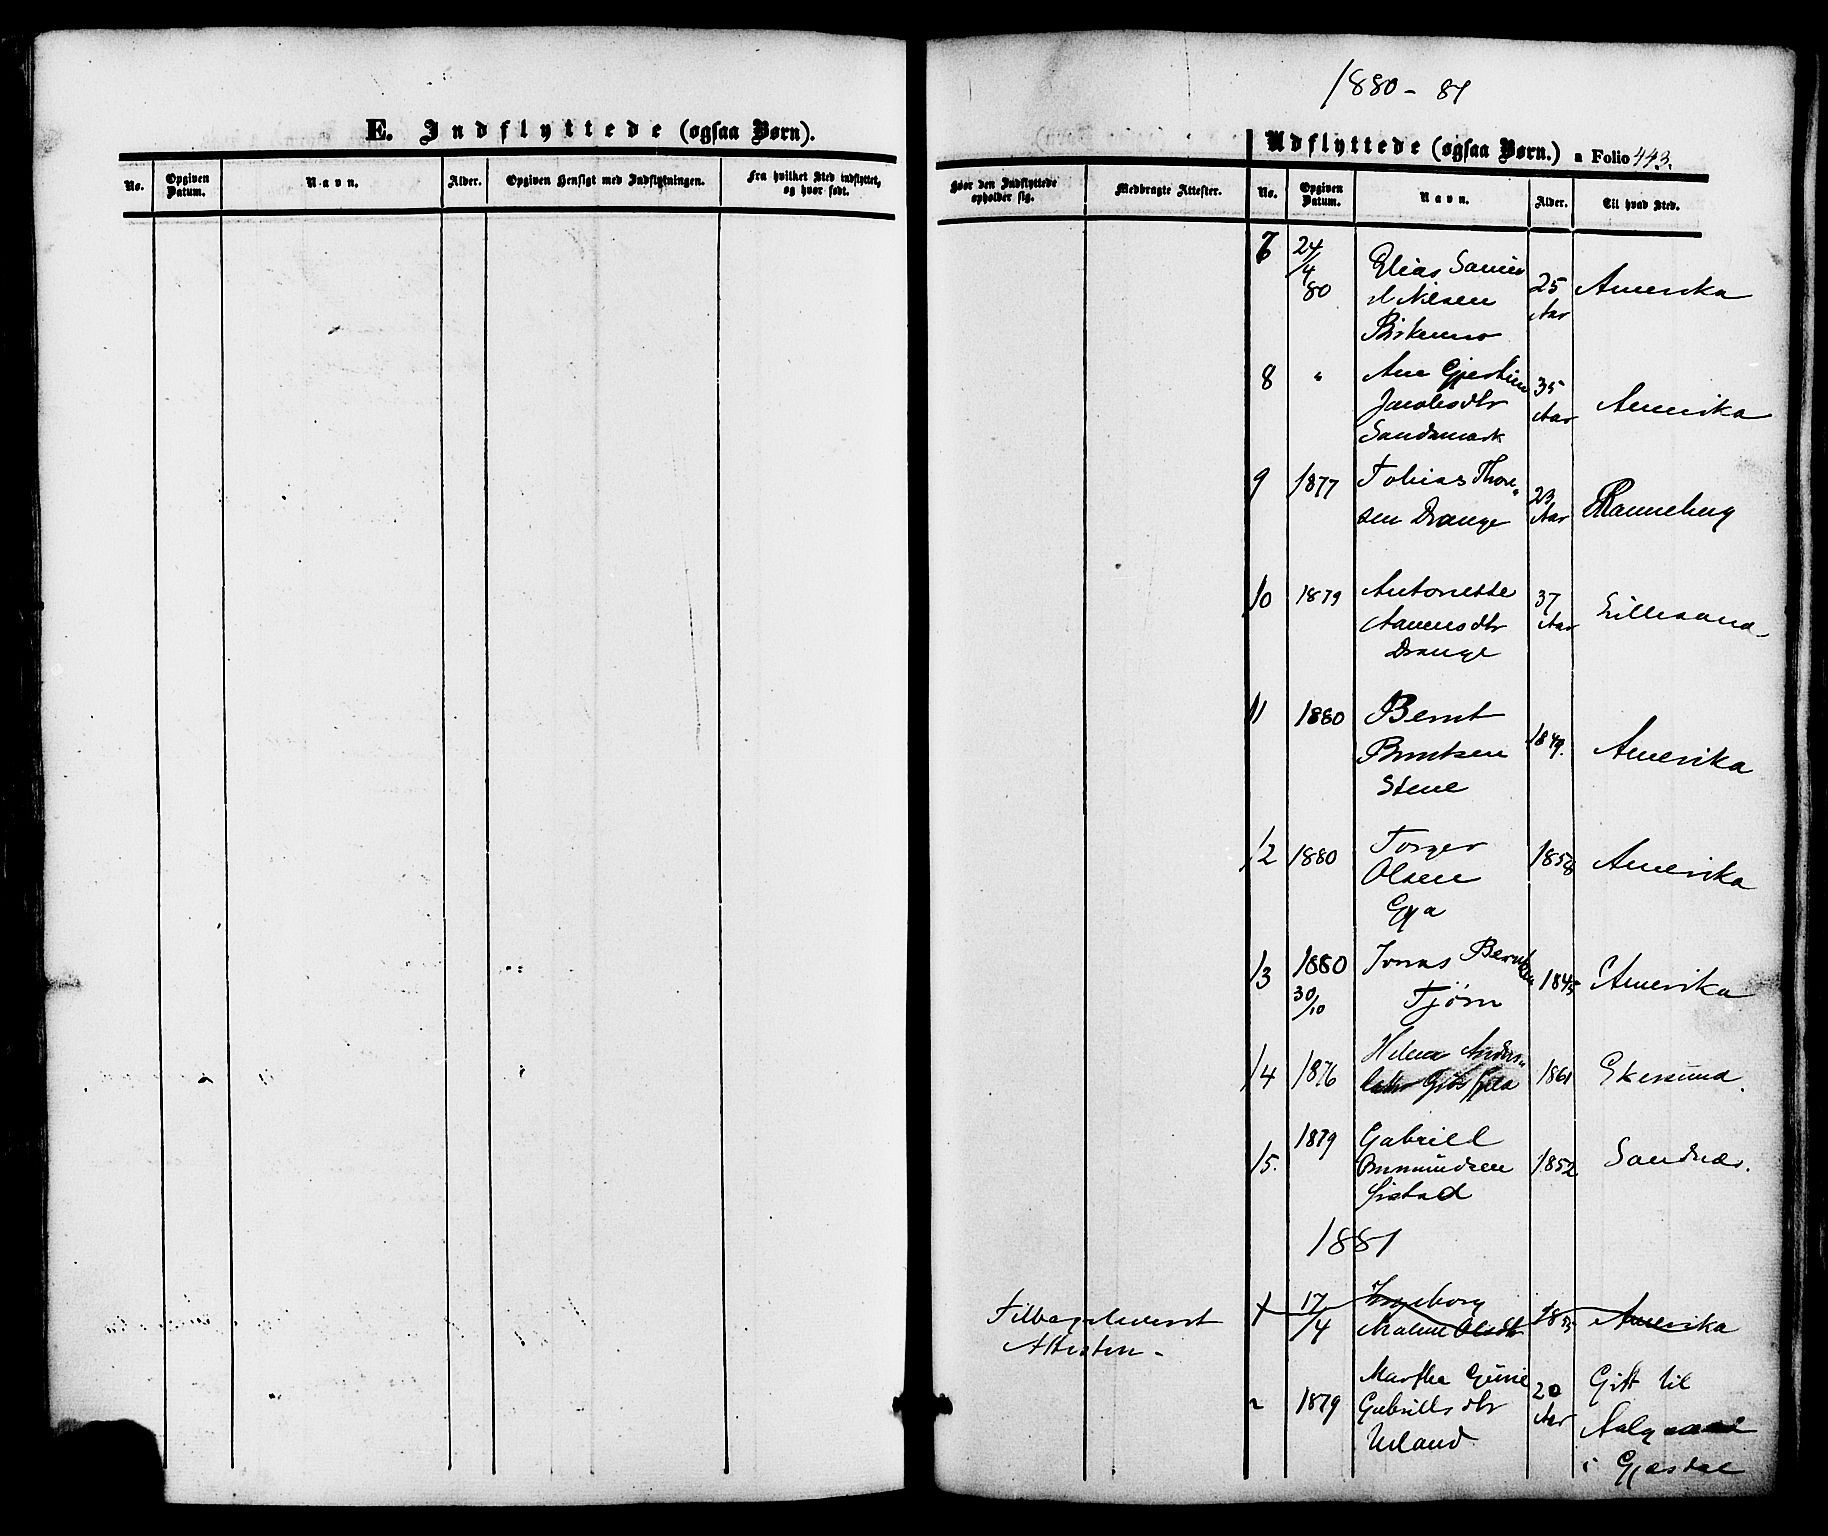 E. Indflyttede (ogsaa Børn).
No.
Opgiven Datum.
Navn.
Alder.
Opgiven Hensigt med Indflytningen.
Fra hvilket Sted indflyttet, og hvor født.
1880-81
Udflyttede (ogsaa Børn.) a Folio 443.
Hvor den Indflyttede opholder sig.
Medbragte Attester.
No.
Opgiven Datum.
Navn.
Alder.
Til hvad Sted.
7 24/4 80 Elias Samu
el Nilsen 25 Aar Amerika
8 " Ane Gjertine
Jacobsdtr 35 Aar Amerika
Sandsmark
9 1877 Tobias Thor-
sen Drange 23 Aar Ranneberg
10 1879 Antonette 37 Aar Lillesand
Drange
11 1880 Bernt
Berntsen 1849. Amerika
Stene
12 1880 Torger 1858 Amerika
Olsen
Gya
13 1880 30/10 Jonas Berntsen 1845 Amerika
Tjørn
14 1876 Helene Anders- 1861 Ekersund.
15. 1879 Gabriel
Osmundsen 1852 Sandnæs.
1881
Tilbageleveret
Attesten -
1 17/4 Ingeborg
Malene Olsdtr Amerika
2 1879 Martha Gurine
Gabrielsdtr 20 Aar Gift til
Ueland Aalgaard
i Gjesdal